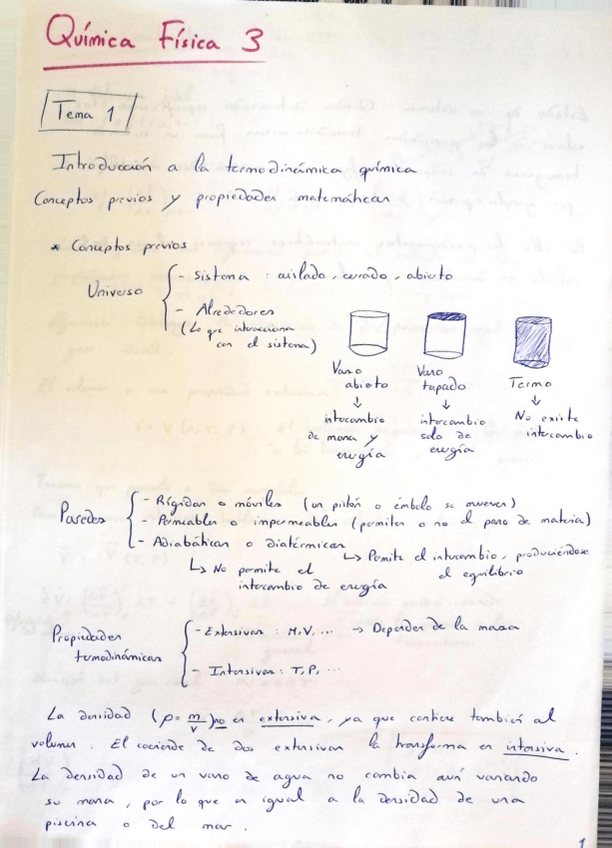 Química Física 3
Tema 1
Introducción a la termodinámica química
Conceptos previos y propiedades matemáticas
* Conceptos previos
Universo
- Sistema : aislado, cerrado, abierto
- Alrededores
(Lo que interacciona
con el sistema)
Vaso
abierto
↓
intercambio
de masa y
energía
Vaso
tapado
↓
intercambio
solo de
energía
Termo
↓
No existe
intercambio
Paredes
- Rígidas o móviles (un pistón o émbolo se mueven)
- Permeables o impermeables (permiten o no el paso de materia)
- Adiabáticas o diatérmicas
↳ Permite el intercambio, produciéndose
el equilibrio
↳ No permite el
intercambio de energía
Propiedades
termodinámicas
- Extensivas : M, V, ... → Dependen de la masa
- Intensivas : T, P, ...
La densidad (ρ = m/V) no es extensiva, ya que contiene también al
volumen. El cociente de dos extensivas la transforma en intensiva.
La densidad de un vaso de agua no cambia aún variando
su masa, por lo que es igual a la densidad de una
piscina o del mar.
1